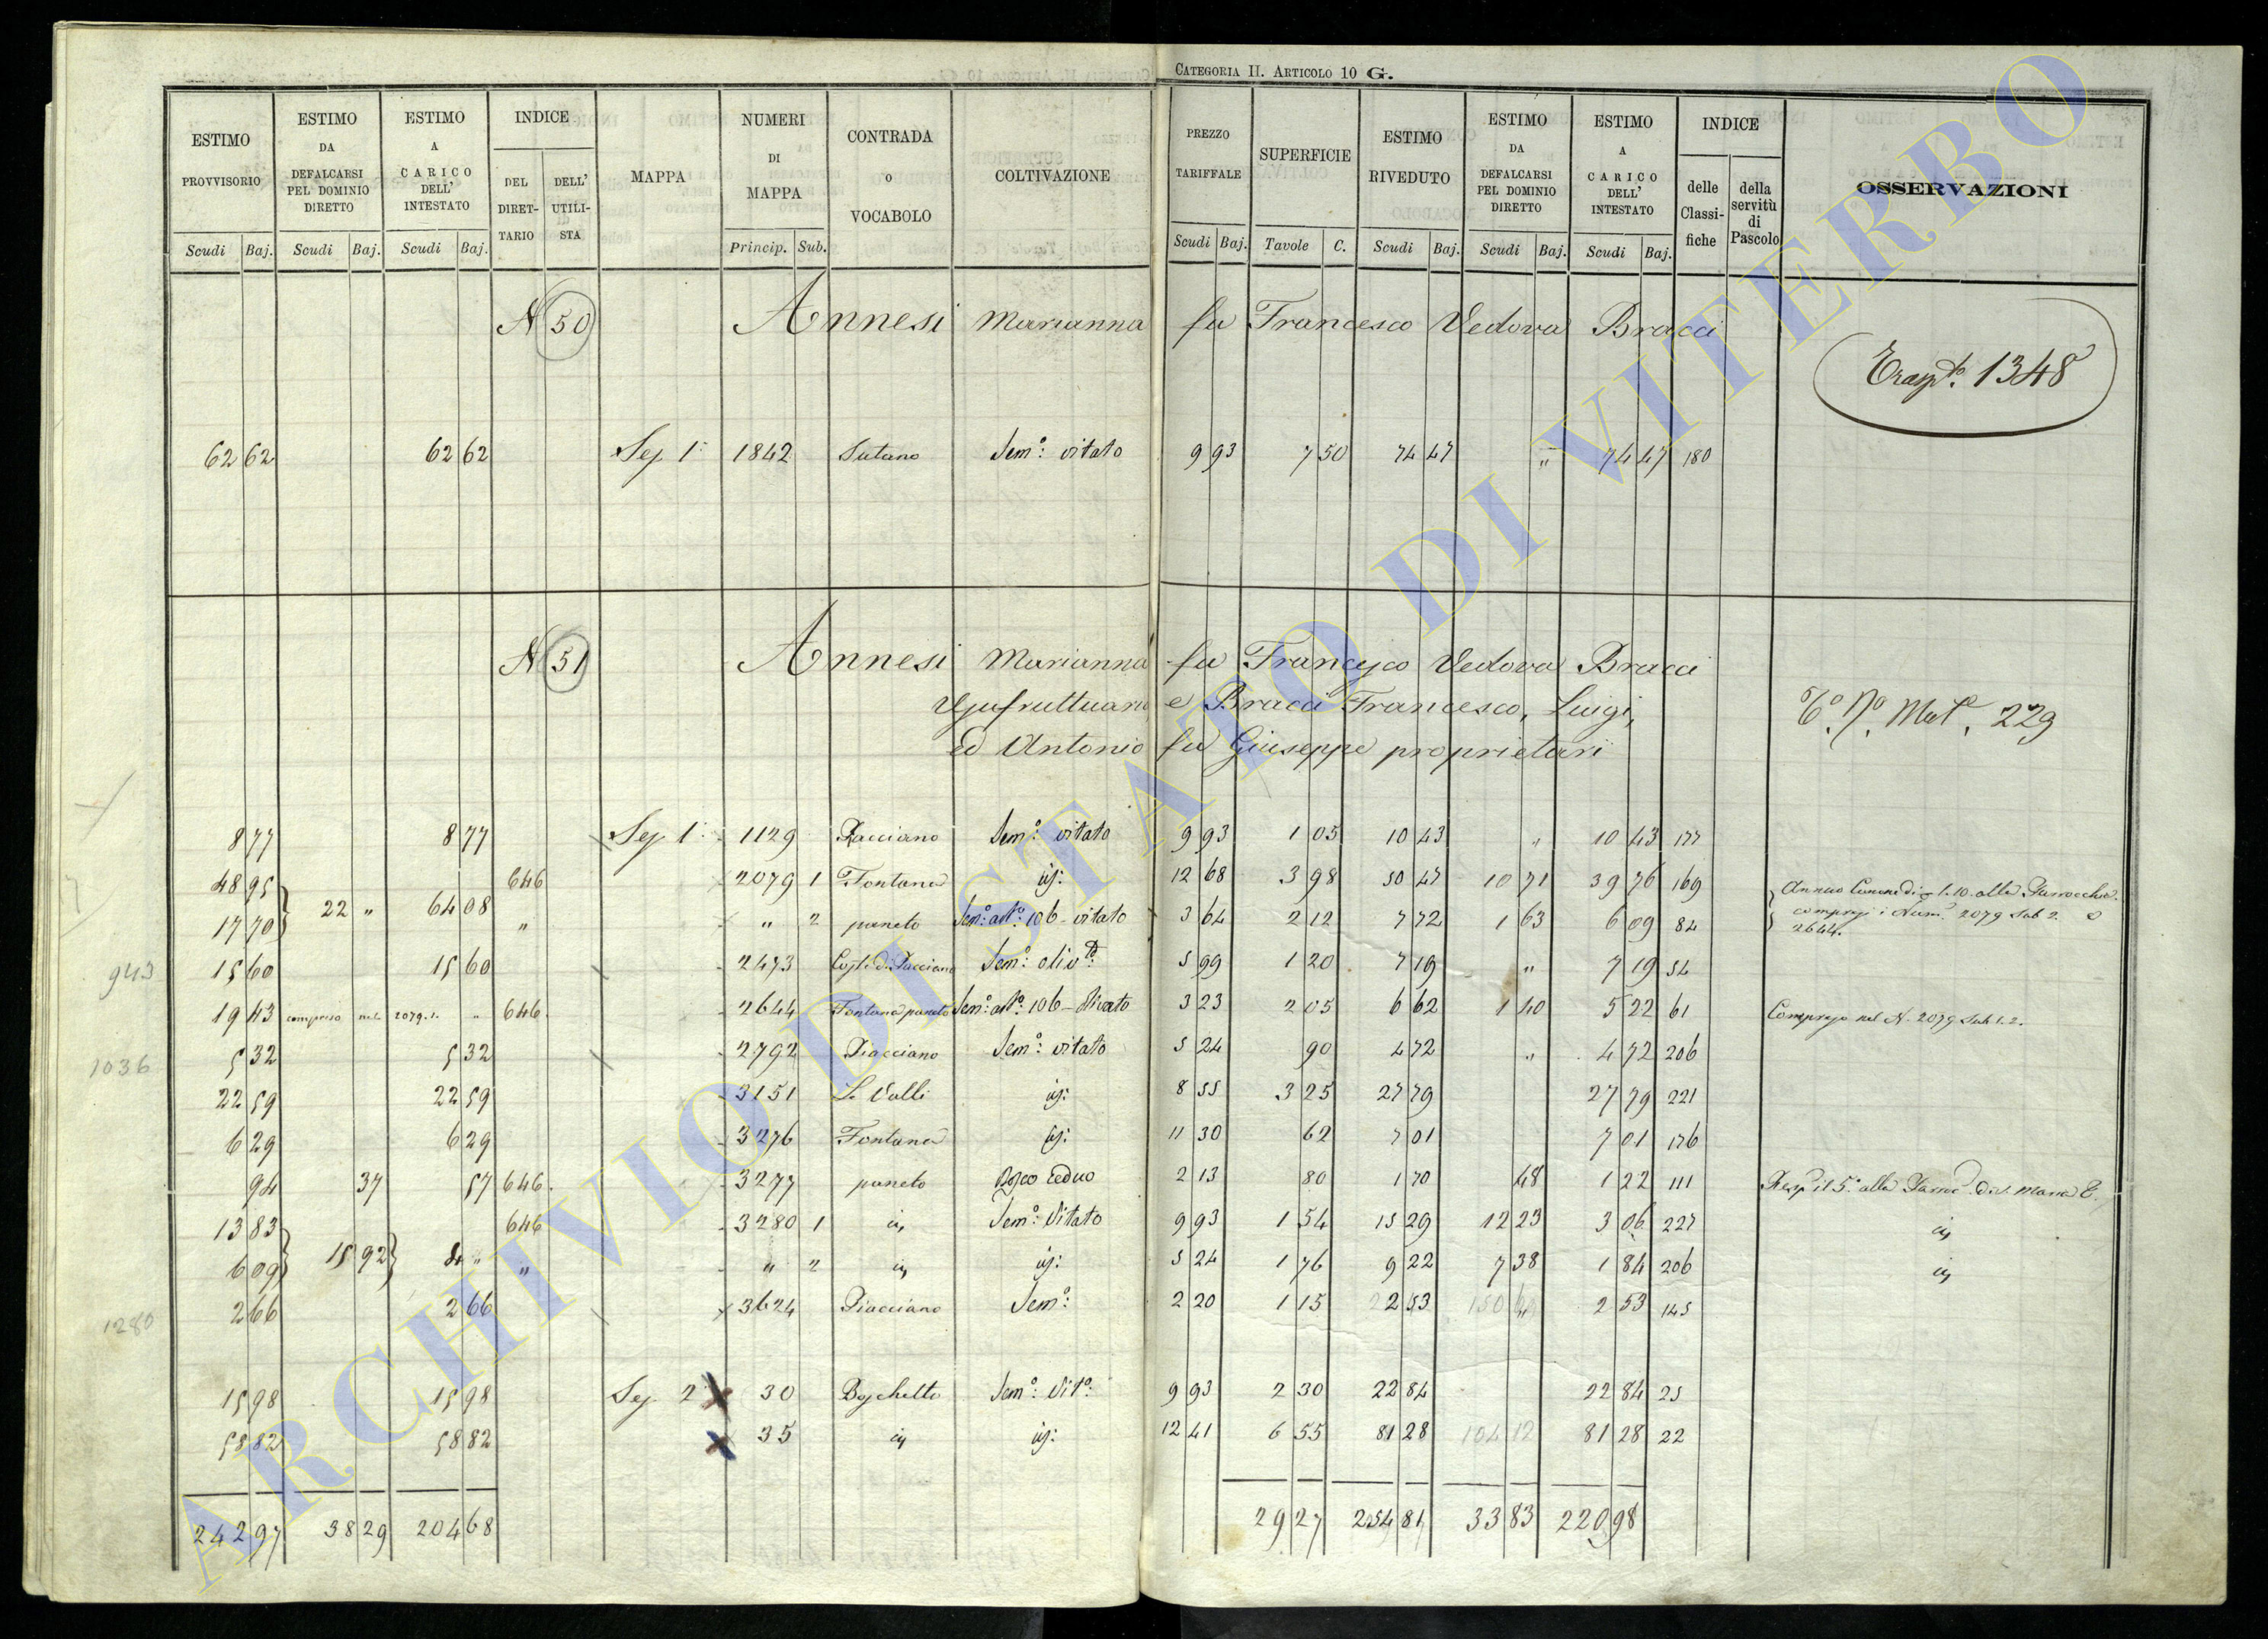 CATEGORIA II. ARTICOLO 10 G.
ESTIMO PROVVISORIO | ESTIMO DA DEFALCARSI PEL DOMINIO DIRETTO | ESTIMO A CARICO DELL' INTESTATO | INDICE | MAPPA | NUMERI DI MAPPA | CONTRADA O VOCABOLO | COLTIVAZIONE | PREZZO TARIFFALE | SUPERFICIE | ESTIMO RIVEDUTO | ESTIMO DA DEFALCARSI PEL DOMINIO DIRETTO | ESTIMO A CARICO DELL' INTESTATO | INDICE | OSSERVAZIONI
DEL DIRETTARIO | DELL' UTILISTA | delle Classifiche | della servitù di Pascolo
Scudi Baj. | Scudi Baj. | Scudi Baj. | Princip. Sub. | Scudi Baj. | Tavole C. | Scudi Baj. | Scudi Baj. | Scudi Baj.
N 50 Annesi Marianna fu Francesco Vedova Bracci
Trasp.to 1348
62 62 | 62 62 | Sez 1ª | 1842 | Sutano | Sem.º vitato | 9 93 | 7 50 | 74 47 | " | 74 47 | 180
N 51 Annesi Marianna fu Francesco Vedova Bracci
Usufruttuaria e Bracci Francesco, Luigi,
ed Antonio fu Giuseppe proprietari
Mat. 229
8 77 | 8 77 | Sez 1ª | 1129 | Pacciano | Sem.º vitato | 9 93 | 1 05 | 10 43 | " | 10 43 | 177
48 95 | 22 " | 64 08 | 646 | 2079 1 | Fontana | id: | 12 68 | 3 98 | 50 47 | 10 71 | 39 76 | 169 | Annuo Canone di 1.10 alla Parrocchia
17 70 | " | " 2 | paneto | Sem.º art.º 106 - vitato | 3 64 | 2 12 | 7 72 | 1 63 | 6 09 | 84 | compresi i Num.i 2079 Sub 2. e 2644.
943 | 15 60 | 15 60 | 2473 | Colle di Pacciano | Sem.º oliv.to | 5 99 | 1 20 | 7 19 | " | 7 19 | 54
19 43 | compreso nel 2079.1. " | 646 | 2644 | Fontana paneto | Sem.º art.º 106 - olivato | 3 23 | 2 05 | 6 62 | 1 40 | 5 22 | 61 | Compreso nel N. 2079 Sub 1.2.
1036 | 5 32 | 5 32 | 2792 | Piacciano | Sem.º vitato | 5 24 | 90 | 4 72 | " | 4 72 | 206
22 59 | 22 59 | 3151 | Le Valli | id: | 8 55 | 3 25 | 27 79 | 27 79 | 221
6 29 | 6 29 | 3276 | Fontana | id: | 11 30 | 62 | 7 01 | 7 01 | 176
94 | 37 | 57 | 646 | 3277 | paneto | Bosco Ceduo | 2 13 | 80 | 1 70 | 48 | 1 22 | 111 | Resp. il 5.º alla Parroc. di S. Maria
13 83 | 15 92 | 4 " | 646 | 3280 1 | id | Sem.º Vitato | 9 93 | 1 54 | 15 29 | 12 23 | 3 06 | 227 | id
6 09 | " | " 2 | id | id: | 5 24 | 1 76 | 9 22 | 7 38 | 1 84 | 206 | id
1280 | 2 66 | 2 66 | 3624 | Piacciano | Sem.º | 2 20 | 1 15 | 2 53 | " | 2 53 | 145
15 98 | 15 98 | Sez 2ª | 30 | Boschetto | Sem.º Vit.º | 9 93 | 2 30 | 22 84 | 22 84 | 25
58 82 | 58 82 | 35 | id | id: | 12 41 | 6 55 | 81 28 | 104 12 | 81 28 | 22
242 97 | 38 29 | 204 68 | 29 27 | 254 81 | 33 83 | 220 98
ARCHIVIO DI STATO DI VITERBO